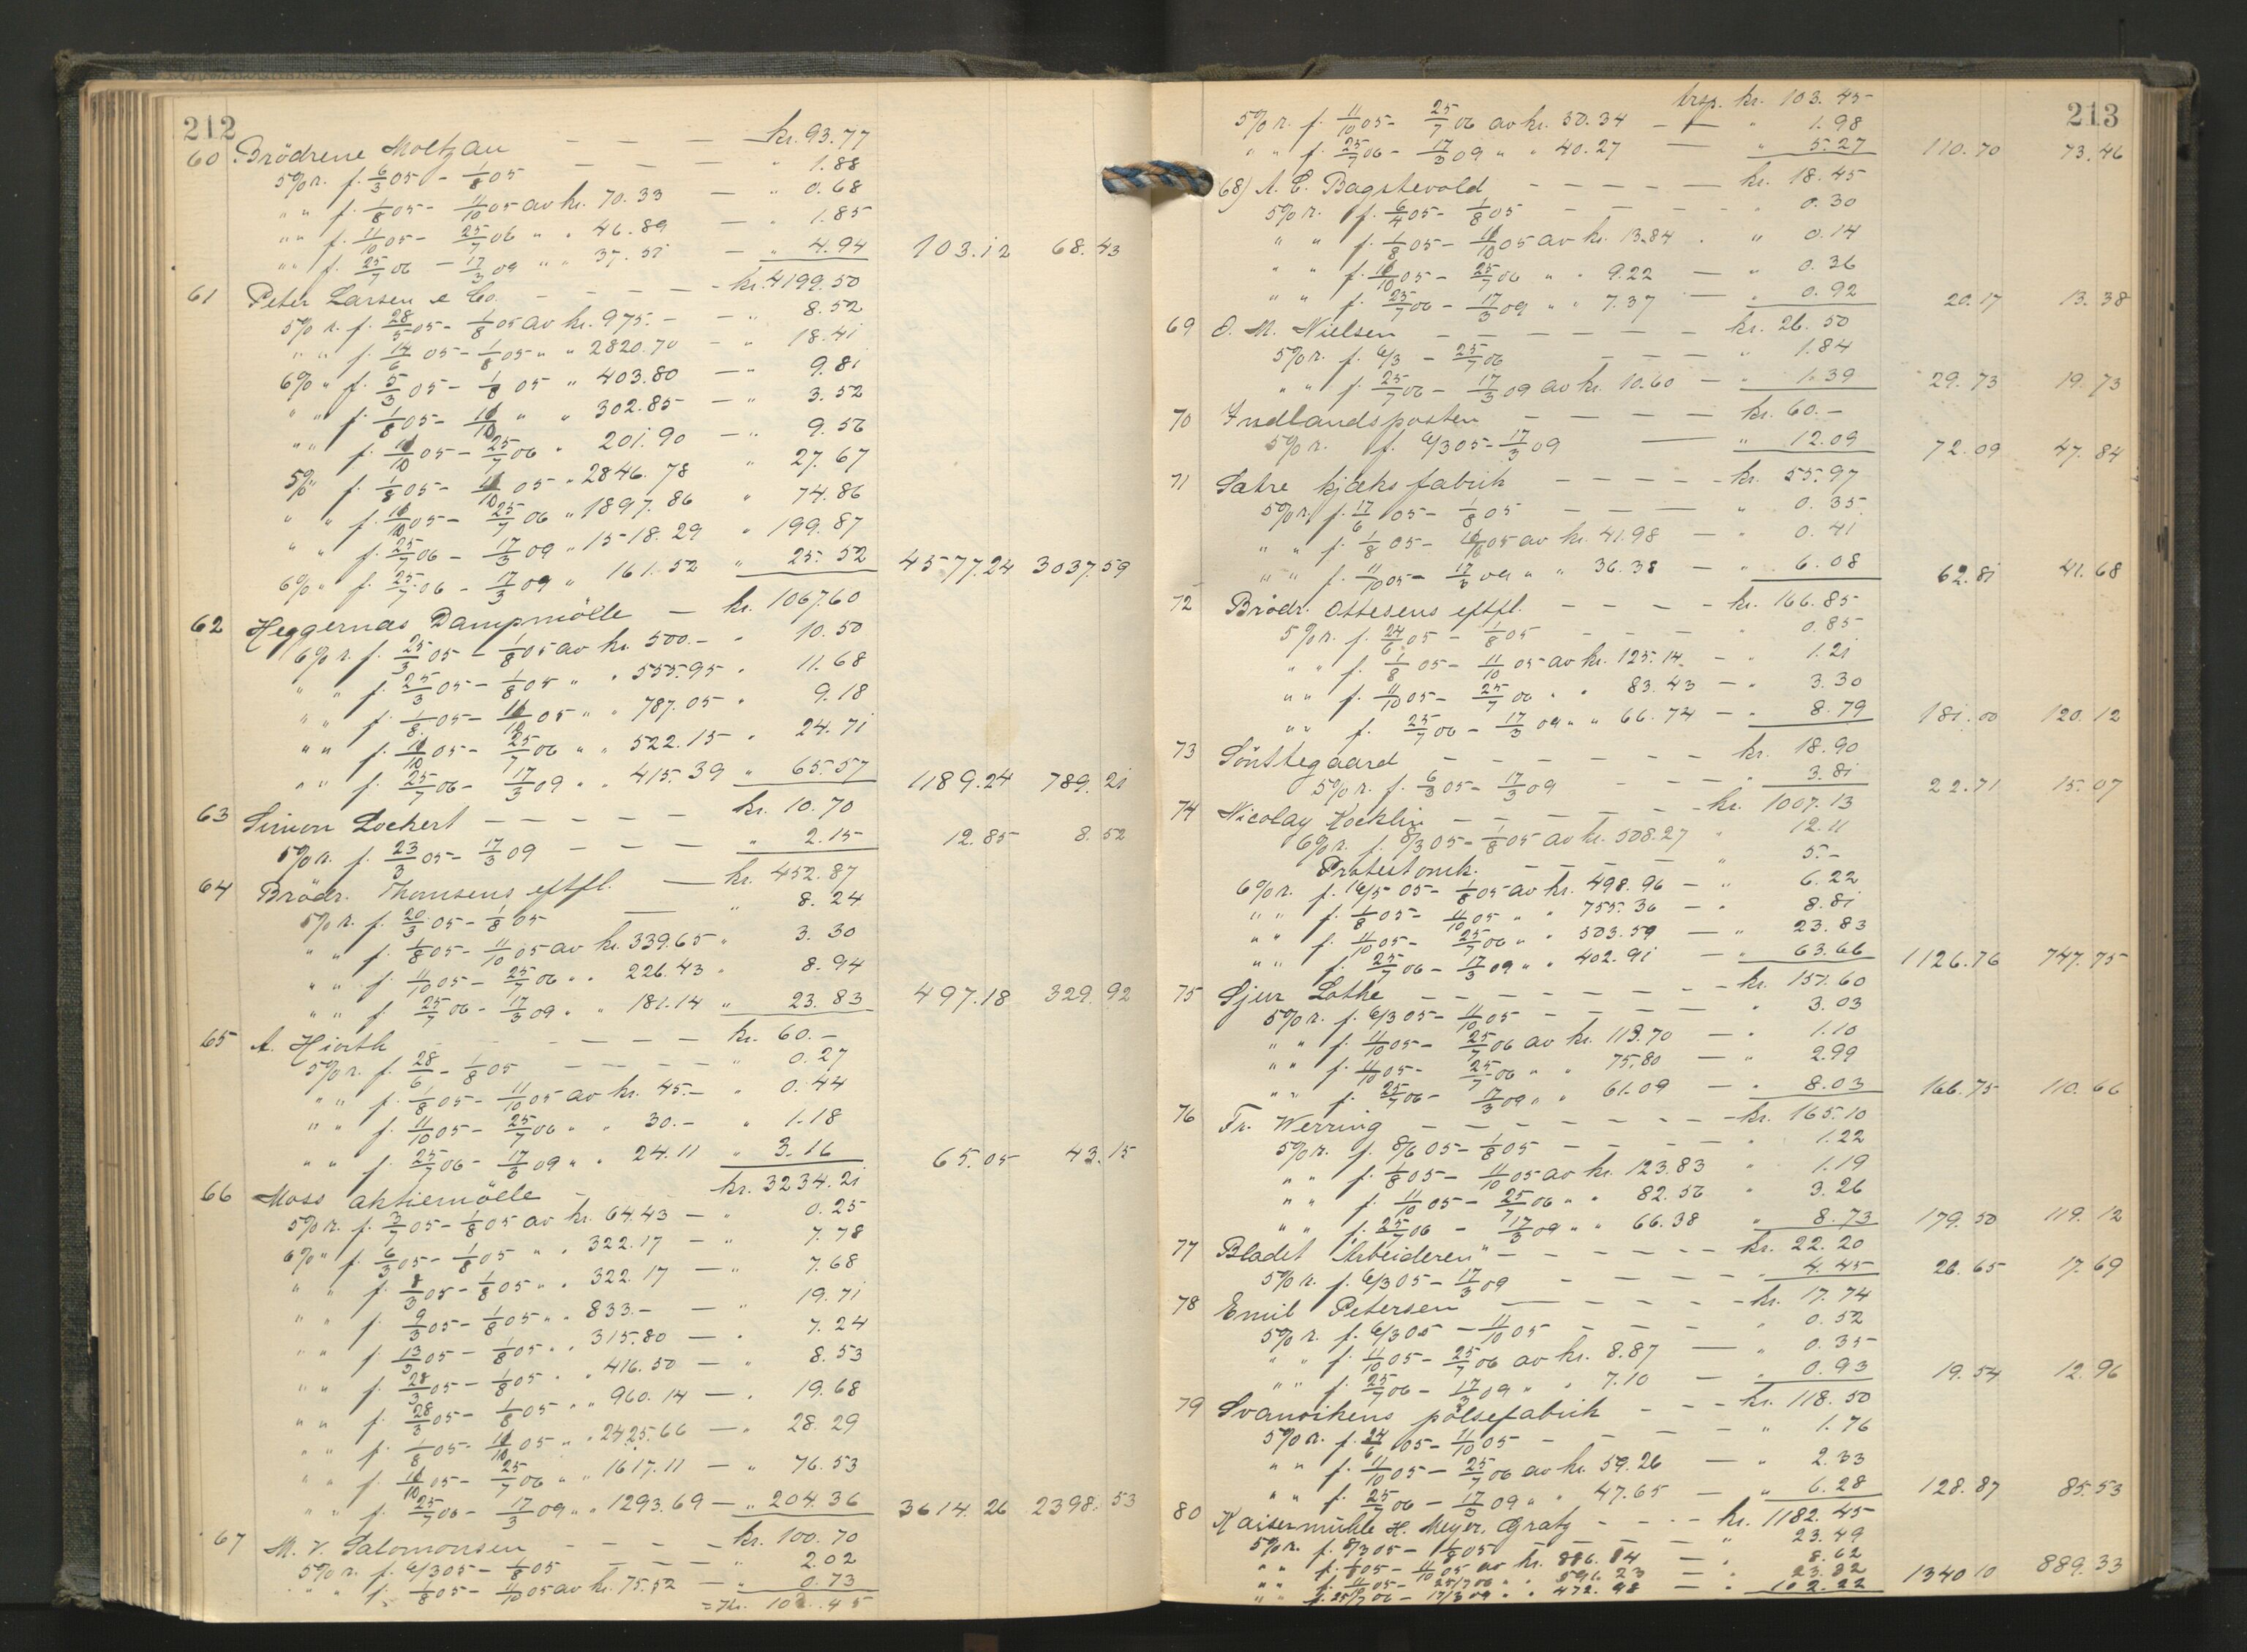 212
60 Brödrene Moltzau — — — kr. 93.77
5% r. f. 6/3 05 - 1/8 05 — — — " 1.88
" " f. 1/8 05 - 11/10 05 av kr. 70.33 — " 0.68
" " f. 11/10 05 - 25/7 06 " " 46.89 — " 1.85
" " f. 25/7 06 - 17/3 09 " " 37.51 — " 4.94 103.12 68.43
61 Peter Larsen & Co. — — — — kr. 4199.50
5% r. f. 28/5 05 - 1/8 05 av kr. 975.- — " 8.52
" " f. 14/6 05 - 1/8 05 " " 2820.70 — " 18.41
6% " f. 5/3 05 - 1/8 05 " 403.80 — " 9.81
" " f. 1/8 05 - 11/10 " " 302.85 — " 3.52
" " f. 11/10 05 - 25/7 06 " 201.90 — " 9.56
5% " f. 1/8 05 - 11/10 05 " 2846.78 " 27.67
" " f. 11/10 05 - 25/7 06 " 1897.86 " 74.86
" " f. 25/7 06 - 17/3 09 " 1518.29 " 199.87
6% " f. 25/7 06 - 17/3 09 " 161.52 " 25.52 4577.24 3037.59
62 Heggernæs Dampmölle — kr. 1067.60
6% r. f. 25/3 05 - 1/8 05 av kr. 500.- " 10.50
" " f. 25/3 05 - 1/8 05 " " 555.95 " 11.68
" " f. 1/8 05 - 11/10 05 " " 787.05 " 9.18
" " f. 11/10 05 - 25/7 06 " " 522.15 " 24.71
" " f. 25/7 06 - 17/3 09 " " 415.39 " 65.57 1189.24 789.21
63 Simon Lockert — — — — — kr. 10.70
5% r. f. 23/3 05 - 17/3 09 — — — " 2.15 12.85 8.52
64 Brödr. Thomsens eftfl. — kr. 452.87
5% r. f. 20/3 05 - 1/8 05 — " 8.24
" " f. 1/8 05 - 11/10 05 av kr. 339.65 " 3.30
" " f. 11/10 05 - 25/7 06 " " 226.43 " 8.94
" " f. 25/7 06 - 17/3 09 " " 181.14 " 23.83 497.18 329.92
65 A. Hiorth — — — — — kr. 60.-
5% r. f. 28/6 - 1/8 05 — — — — " 0.27
" " f. 1/8 05 - 11/10 05 av kr. 45.- " 0.44
" " f. 11/10 05 - 25/7 06 " " 30.- " 1.18
" " f. 25/7 06 - 17/3 09 " " 24.11 " 3.16 65.05 43.15
66 Moss aktiemölle — kr. 3234.21
5% r. f. 3/7 05 - 1/8 05 av kr. 64.43 — " 0.25
6% " f. 6/3 05 - 1/8 05 " " 322.17 — " 7.78
" " f. 8/3 05 - 1/8 05 " " 322.17 — " 7.68
" " f. 9/3 05 - 1/8 05 " " 833.- — " 19.71
" " f. 13/3 05 - 1/8 05 " " 315.80 — " 7.24
" " f. 28/3 05 - 1/8 05 " " 416.50 — " 8.53
" " f. 28/3 05 - 1/8 05 " " 960.14 — " 19.68
" " f. 1/8 05 - 11/10 05 " " 2425.66 — " 28.29
" " f. 11/10 05 - 25/7 06 " " 1617.11 — " 76.53
" " f. 25/7 06 - 17/3 09 " " 1293.69 — " 204.36 3614.26 2398.53
67 M. V. Salomonsen — — — — kr. 100.70
5% r. f. 6/3 05 - 1/8 05 — — — " 2.02
" " f. 1/8 05 - 11/10 05 av kr. 75.52 — " 0.73
= Kr. 103.45
213
trsp. kr. 103.45
5% r. f. 11/10 05 - 25/7 06 av kr. 50.34 — — " 1.98
" " f. 25/7 06 - 17/3 09 " " 40.27 — " 5.27 110.70 73.46
68) A. C. Bagstevold — — — — — kr. 18.45
5% r. f. 6/4 05 - 1/8 05 — — — — " 0.30
" " f. 1/8 05 - 11/10 05 av kr. 13.84 " 0.14
" " f. 11/10 05 - 25/7 06 " " 9.22 — " 0.36
" " f. 25/7 06 - 17/3 09 " " 7.37 — " 0.92 20.17 13.38
69 O. M. Nielsen — — — — — — kr. 26.50
5% r. f. 6/3 - 25/7 06 — — — " 1.84
" " f. 25/7 06 - 17/3 09 av kr. 10.60 — " 1.39 29.73 19.73
70 Indlandsposten — — — — kr. 60.-
5% r. f. 6/3 05 - 17/3 09 — " 12.09 72.09 47.84
71 Sætre kjæksfabrik — — — — kr. 55.97
5% r. f. 17/6 05 - 1/8 05 — — — " 0.35
" " f. 1/8 05 - 11/10 05 av kr. 41.98 — " 0.41
" " f. 11/10 05 - 17/3 09 " " 36.38 — " 6.08 62.81 41.68
72 Brödr. Ottesens eftfl. — — — — kr. 166.85
5% r. f. 24/6 05 - 1/8 05 — — — " 0.85
" " f. 1/8 05 - 11/10 05 av kr. 125.14 — " 1.21
" " f. 11/10 05 - 25/7 06 " " 83.43 — " 3.30
" " f. 25/7 06 - 17/3 09 " " 66.74 — " 8.79 181.00 120.12
73 Sönstegaard — — — — — kr. 18.90
5% r. f. 6/3 05 - 17/3 09 — — — " 3.81 22.71 15.07
74 Nicolay Kocklin — — — — — kr. 1007.13
6% r. f. 8/3 05 - 1/8 05 av kr. 508.27 " 12.11
Protestomk. — — — — — " 5.-
6% r. f. 16/5 05 - 1/8 05 av kr. 498.96 — " 6.22
" " f. 1/8 05 - 11/10 05 " " 755.36 — " 8.81
" " f. 11/10 05 - 25/7 06 " " 503.59 — " 23.83
" " f. 25/7 06 - 17/3 09 " " 402.91 — " 63.66 1126.76 747.75
75 Sjur Lothe — — — — — — — kr. 151.60
5% r. f. 6/3 05 - 11/10 05 — — — — " 3.03
" " f. 11/10 05 - 25/7 06 av kr. 113.70 — " 1.10
" " f. 11/10 05 - 25/7 06 " " 75.80 — " 2.99
" " f. 25/7 06 - 17/3 09 " " 61.09 — " 8.03 166.75 110.66
76 Fr. Werring — — — — — — — kr. 165.10
5% r. f. 8/6 05 - 1/8 05 — — — — " 1.22
" " f. 1/8 05 - 11/10 05 av kr. 123.83 " 1.19
" " f. 11/10 05 - 25/7 06 " " 82.56 " 3.26
" " f. 25/7 06 - 17/3 09 " " 66.38 " 8.73 179.50 119.12
77 Bladet "Arbeideren" — — — — — kr. 22.20
5% r. f. 6/3 05 - 17/3 09 — — — — " 4.45 26.65 17.69
78 Emil Petersen — — — — — kr. 17.74
5% r. f. 6/3 05 - 11/10 05 — — — — " 0.52
" " f. 11/10 05 - 25/7 06 av kr. 8.87 — " 0.35
" " f. 25/7 06 - 17/3 09 " " 7.10 — " 0.93 19.54 12.96
79 Svanvikens pölsefabrik — — — kr. 118.50
5% r. f. 24/6 05 - 11/10 05 — — — — " 1.76
" " f. 11/10 05 - 25/7 06 av kr. 59.26 — " 2.33
" " f. 25/7 06 - 17/3 09 " " 47.65 — " 6.28 128.87 85.53
80 Kaisermühle H. Meyer, Gratz — — — kr. 1182.45
5% r. f. 8/3 05 - 1/8 05 — — — — " 23.49
" " f. 1/8 05 - 11/10 05 av kr. 886.84 — " 8.62
" " f. 11/10 05 - 25/7 06 " " 591.23 — " 23.32
" " f. 25/7 06 - 17/3 09 " " 472.98 — " 102.22 1340.10 889.33